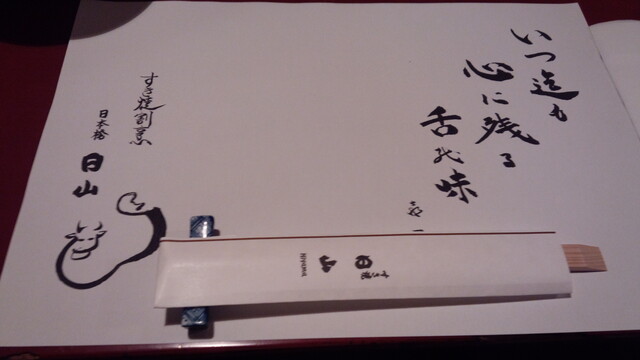 いつ迄も
心に残る
舌の味
喜一
すき焼割烹
日本橋
日山
日山
NIYAMA